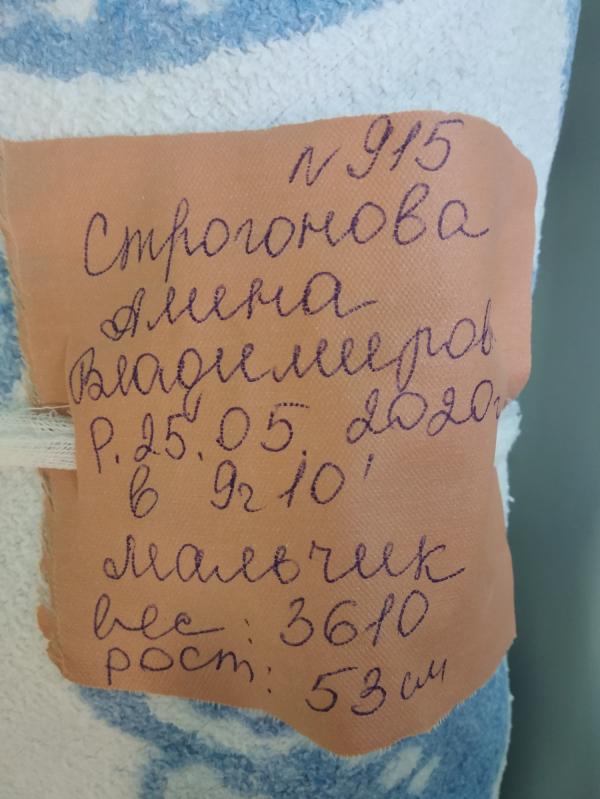 N 915
Строгонова
Амина
Владимиров
Р. 25.05. 2020г
в 9ч 10'
мальчик
вес: 3610
рост: 53 см